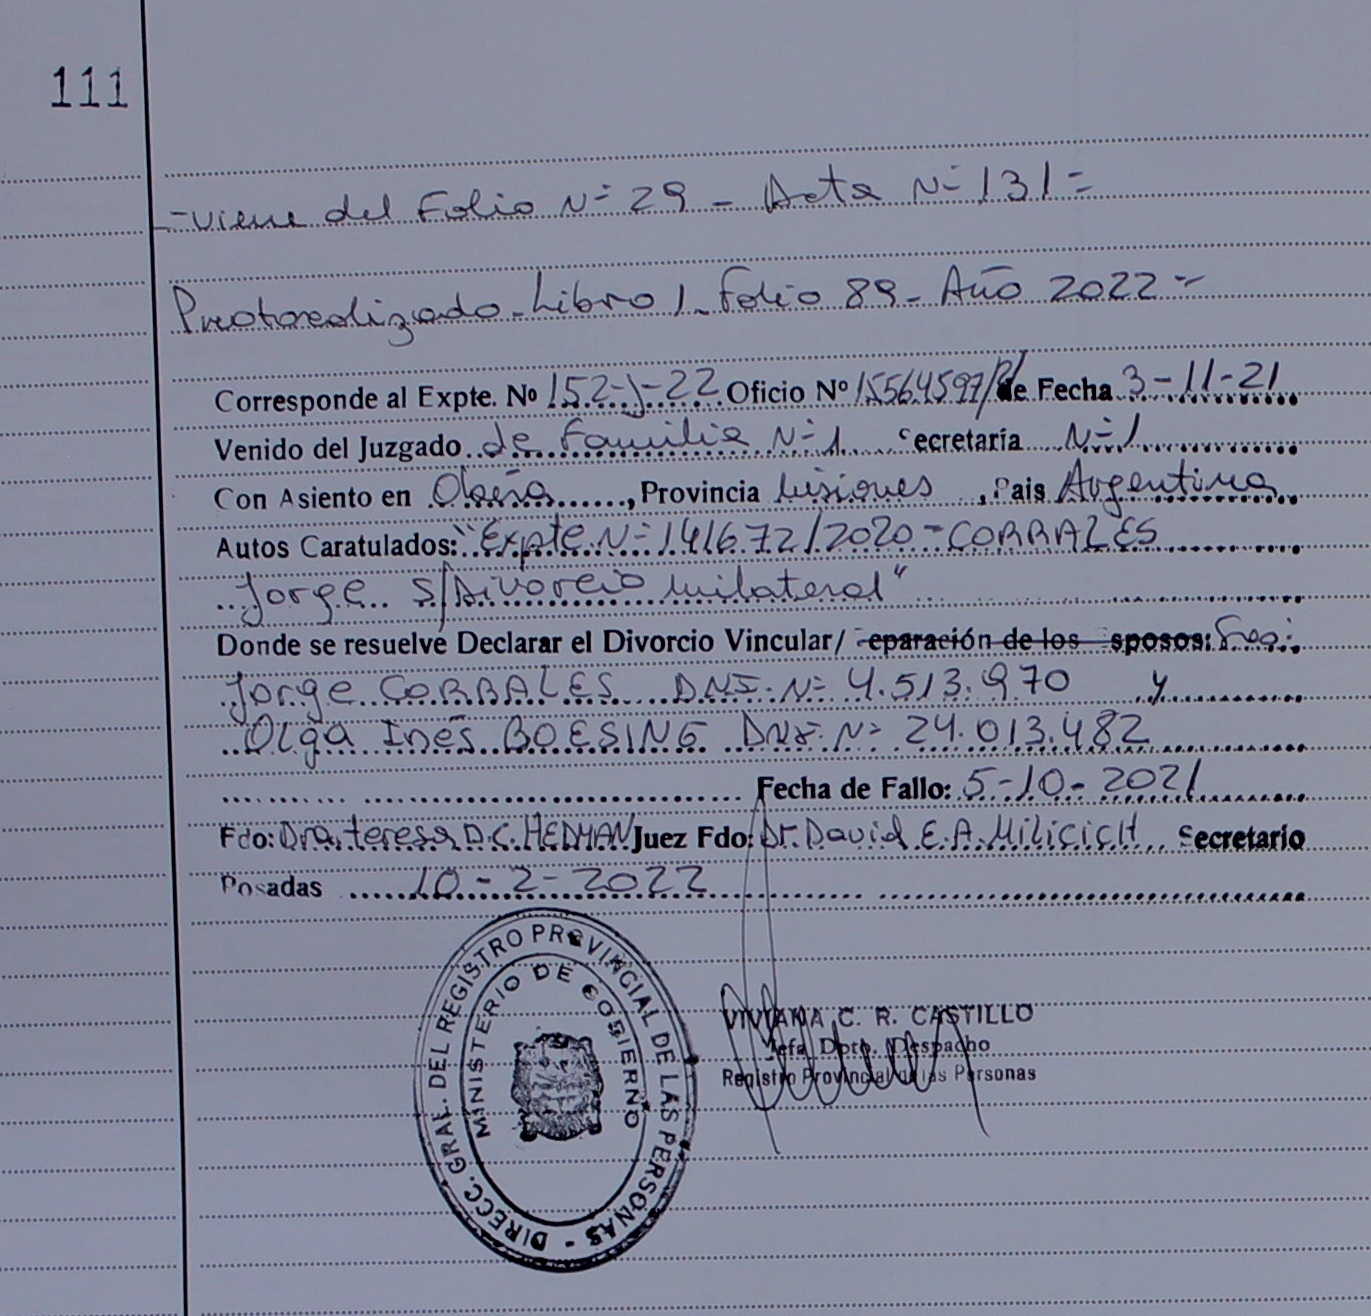 111
-viene del Folio N= 29 - Acta N= 131=
Protocolizado - Libro 1 - Folio 89 - Año 2022 -
Corresponde al Expte. Nº 152-J-22 Oficio Nº 15564597/21 de Fecha 3-11-21
Venido del Juzgado de Familia N=1 Secretaría N=1
Con Asiento en Oberá, Provincia Misiones, Pais Argentina
Autos Caratulados: "Expte N= 141672/2020 - CORRALES
Jorge S/Divorcio Unilateral"
Donde se resuelve Declarar el Divorcio Vincular/ eparación de los sposos:
Jorge CORRALES DNI. N= 4.513.970 y
Olga Inés BOESING DNI. N= 24.013.482
Fecha de Fallo: 5-10-2021
Fdo: Dra. teresa D.C. HEDMAN Juez Fdo: Dr. David E. A. MILICICH Secretario
Posadas 10-2-2022
DIRECC. GRAL. DEL REGISTRO PROVINCIAL DE LAS PERSONAS -
MINISTERIO DE GOBIERNO
VIVIANA C. R. CASTILLO
Jefa Dpto. Despacho
Registro Provincial de las Personas